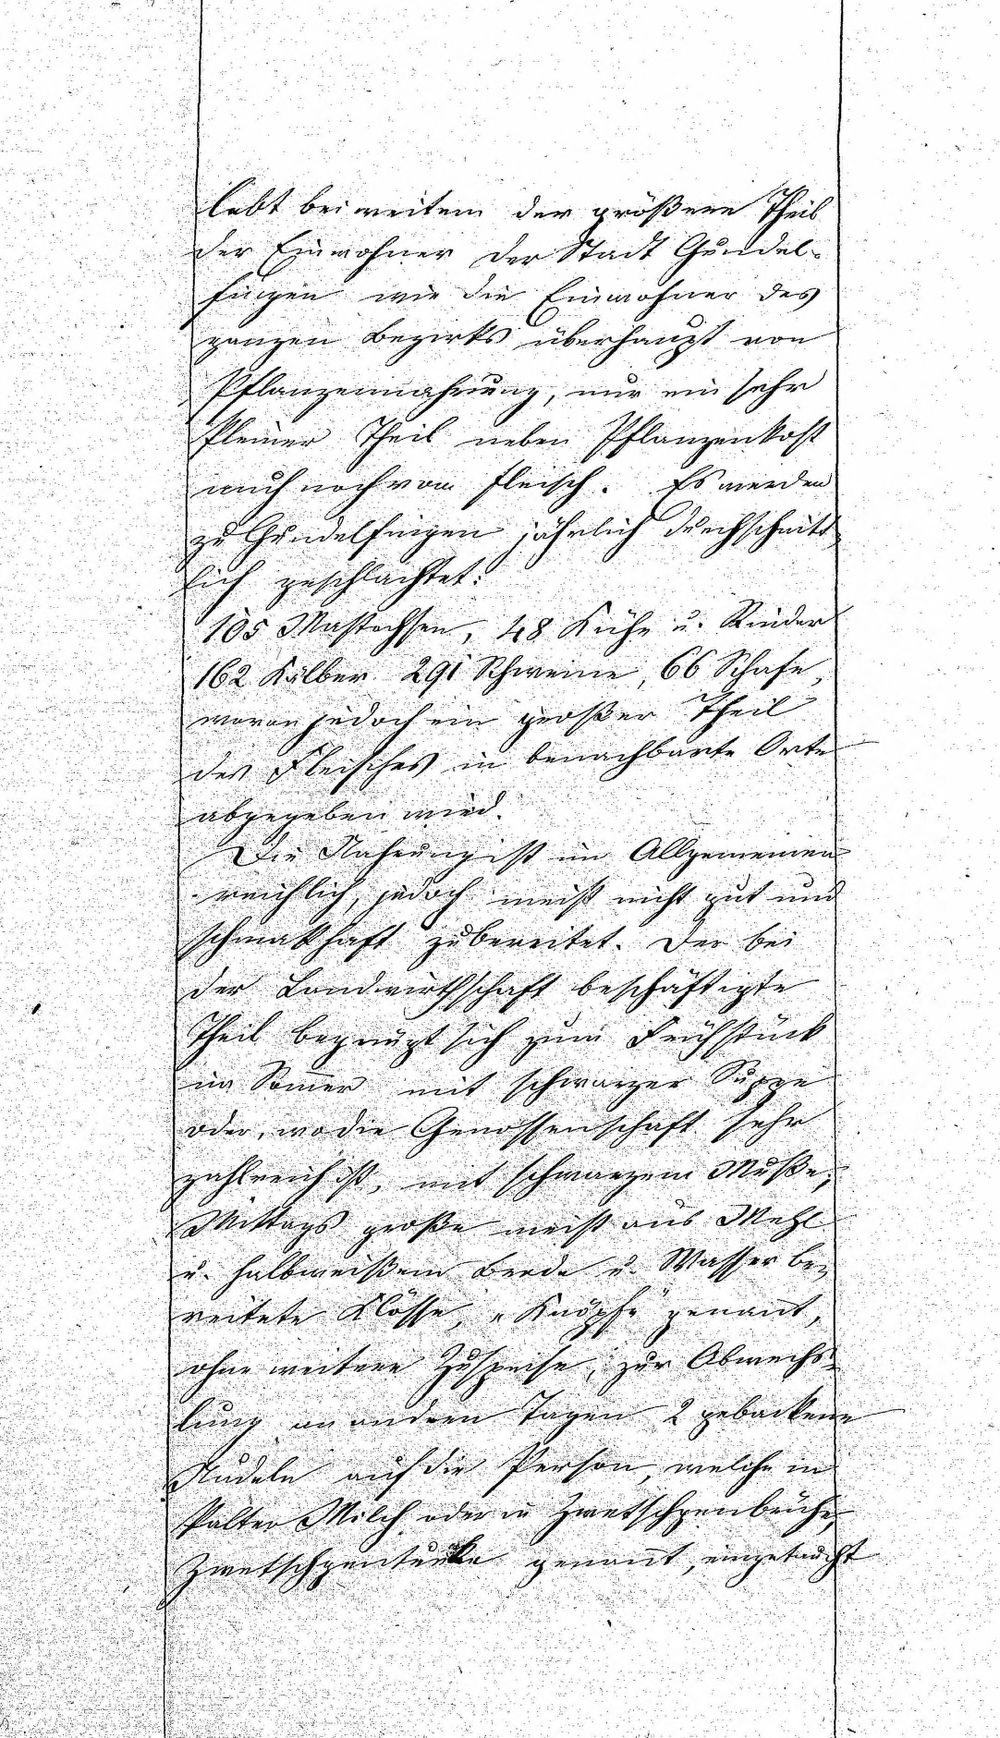 lebt bei weitem der größere Theil
der Einwohner der Stadt Gundel-
fingen wie die Einwohner des
ganzen Bezirks überhaupt von
Pflanzennahrung, nur ein sehr
kleiner Theil neben Pflanzenkost
auch noch von Fleisch. Es werden
zu Gundelfingen jährlich durchschnitt
lich geschlachtet:
105 Mastochsen, 48 Kühe u. Rinder
162 Kälber 291 Schweine, 66 Schafe,
wovon jedoch ein großer Theil
des Fleisches in benachbarte Orte
abgegeben wird.
Die Nahrung ist im Allgemeinen
reichlich, jedoch meist nicht gut und
schmakhaft zubereitet. Der bei
der Landwirthschaft beschäftigte
Theil begnügt sich zum Frühstück
im Som̅er mit schwarzer Suppe
oder, wo die Genossenschaft sehr
zahlreich ist, mit schwarzem Muße,
Mittags große meist aus Mehl
u. halbweißem Brode u. Wasser be-
reitete Klösse, "Knöpfe" genannt,
ohne weitere Zuspeise, zur Abwechs-
lung an andern Tagen 2 gebackene
Nudeln auf die Person, welche in
kalter Milch oder in Zwetschgenbrühe,
Zwetschgentunke genannt, eingetaucht